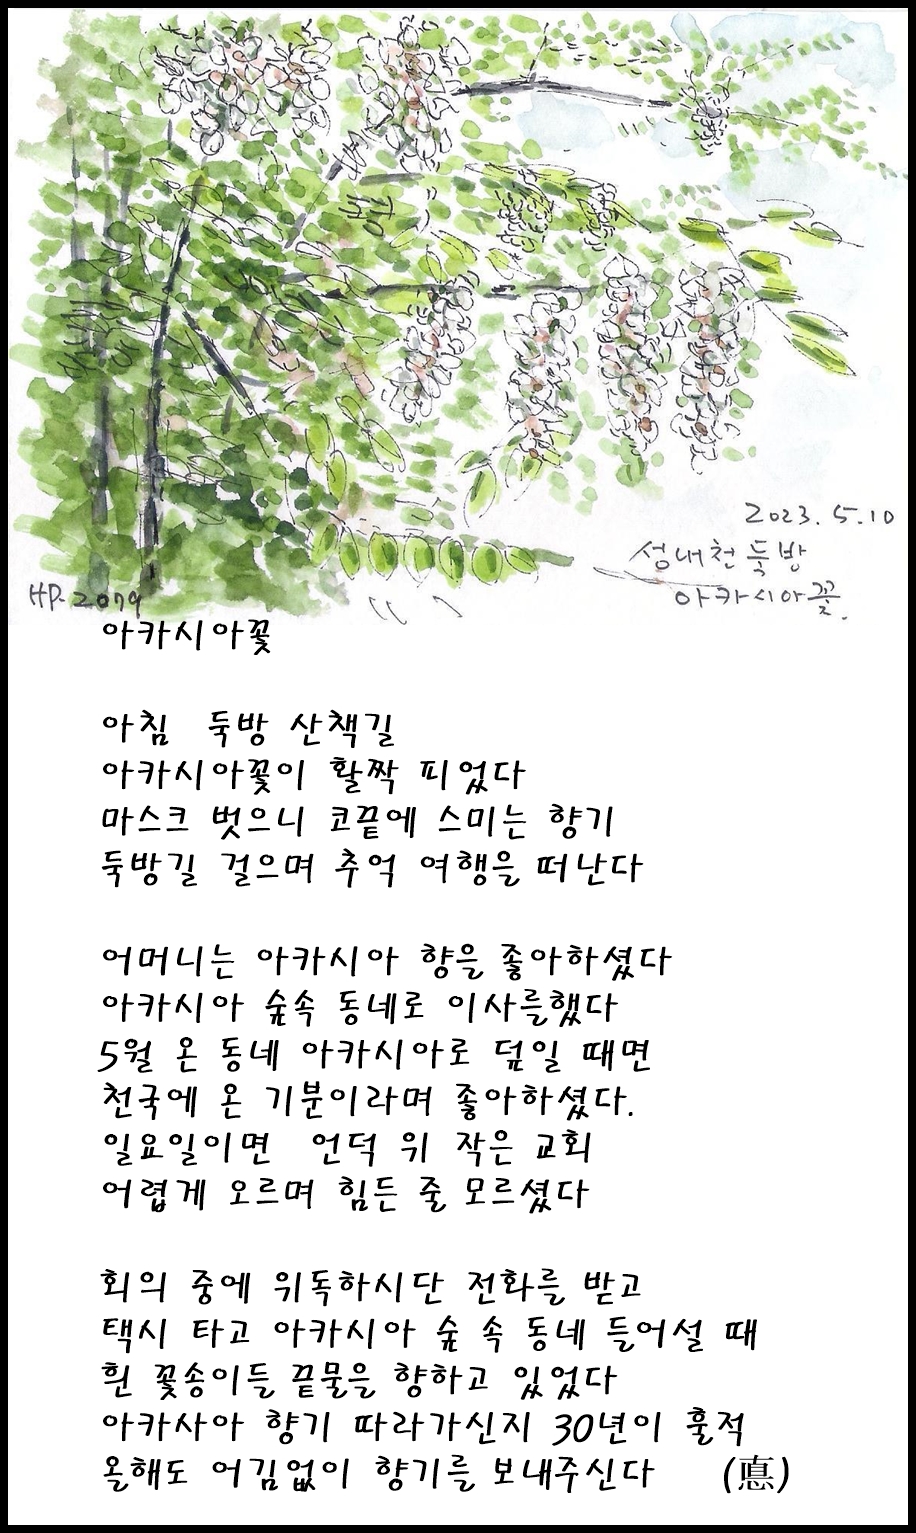 2023. 5. 10
성내천 둑방
아카시아꽃.
HP. 2079
아카시아꽃
아침 둑방 산책길
아카시아꽃이 활짝 피었다
마스크 벗으니 코끝에 스미는 향기
둑방길 걸으며 추억 여행을 떠난다
어머니는 아카시아 향을 좋아하셨다
아카시아 숲속 동네로 이사를했다
5월 온 동네 아카시아로 덮일 때면
천국에 온 기분이라며 좋아하셨다.
일요일이면 언덕 위 작은 교회
어렵게 오르며 힘든 줄 모르셨다
회의 중에 위독하시단 전화를 받고
택시 타고 아카시아 숲 속 동네 들어설 때
흰 꽃송이들 끝물을 향하고 있었다
아카사아 향기 따라가신지 30년이 훌적
올해도 어김없이 향기를 보내주신다 (悳)